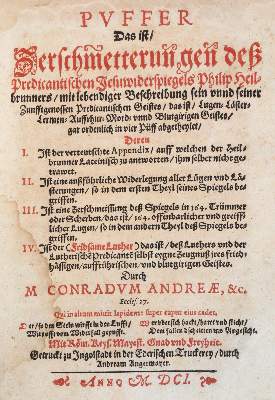 PVFFER
Das ist/
Zerschmetterungen deß
Predicantischen Jesuwiderspiegels Philip Heil-
brunners/ mit lebendiger Beschreibung sein vnnd seiner
Zunfftgenossen Predicantischen Geistes/ das ist/ Lugen- Läster-
Lermen- Auffruhr- Mord vnnd Blutgirigen Geistes/
gar ordenlich in vier Püff abgetheylet/
Deren
I. Ist der verteutschte Appendix/ auff welchen der Heil-
brunner Lateinisch zu antworten/ ihm selber nicht ge-
trawet.
II. Ist eine außführliche Widerlegung aller Lügen vnd Lä-
sterungen/ so in dem ersten Theyl seines Spiegels be-
griffen.
III. Ist eine Zerschmeissung deß Spiegels in 164. Trümmer
oder Scherben/ das ist/ 164. offenbarlicher vnd greiff-
licher Lugen/ so in dem andern Theyl deß Spiegels be-
griffen.
IV. Ist der Luther/ das ist/ deß Luthers vnd der
Lutherische Predicanten selbst eygne Zeugnuß jres fried-
hässigen/ auffrührischen/ vnd blutgirigen Geistes.
Durch
M. CONRADVM ANDREÆ, &c.
Eccles. 27.
Qui in altum mittit lapidem: super caput eius cadet.
Der/ so den Stein wirfft in die Lufft/
Wer
Mit Röm. Keys. Mayest. Gnad vnd Freyheit.
Getruckt zu Ingolstadt in der Ederischen Truckerey/ durch
Andream Angermayer.
ANNO M. DCI.